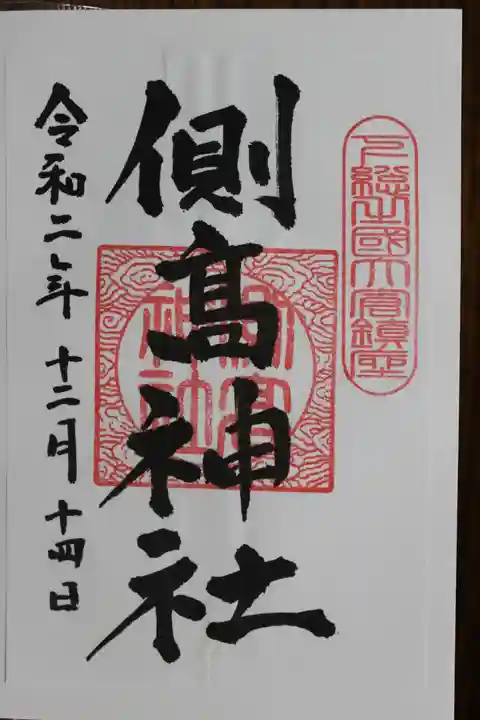 下総之國大倉鎮座
側髙神社
側高神社
令和二年十二月十四日